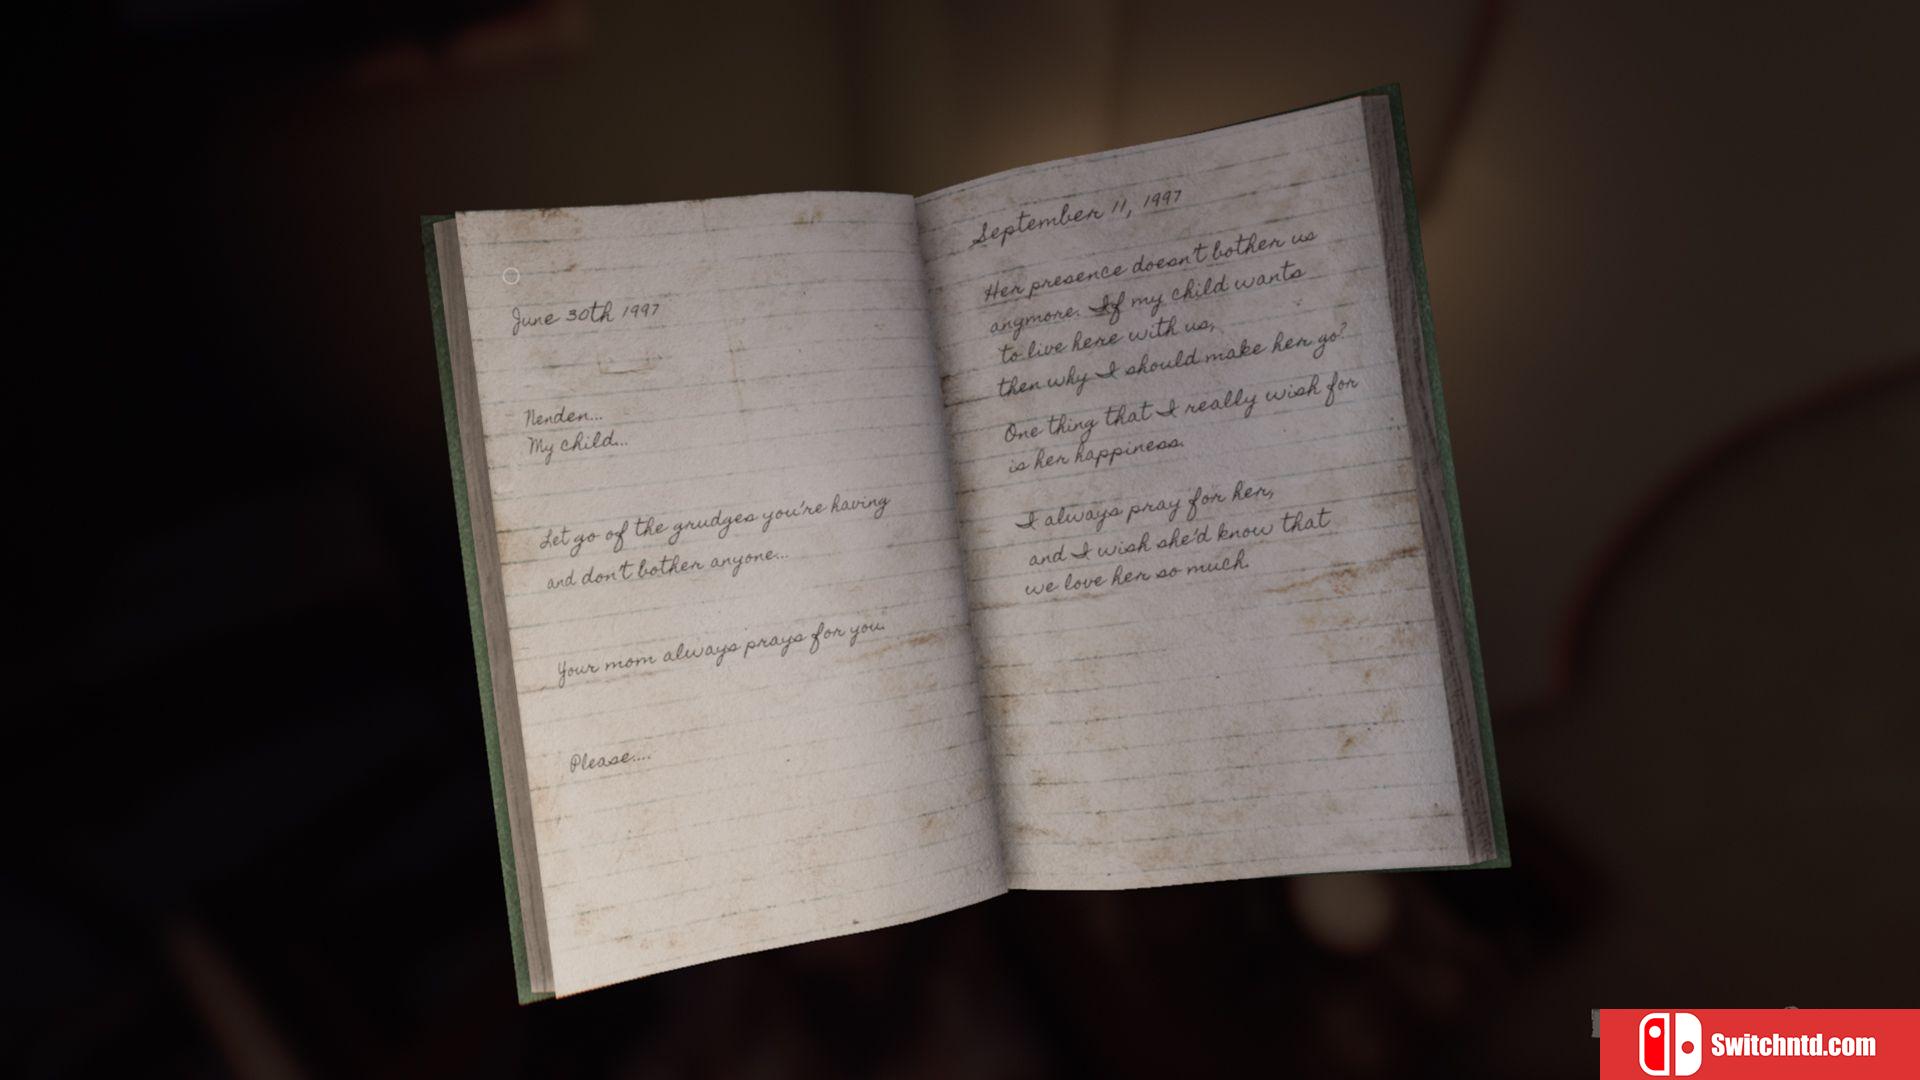 June 30th 1997
Nenden...
My child...
Let go of the grudges you're having
and don't bother anyone...
Your mom always prays for you.
Please....
September 11, 1997
Her presence doesn't bother us
anymore. If my child wants
to live here with us,
then why I should make her go?
One thing that I really wish for
is her happiness.
I always pray for her,
and I wish she'd know that
we love her so much.
Switchntd.com